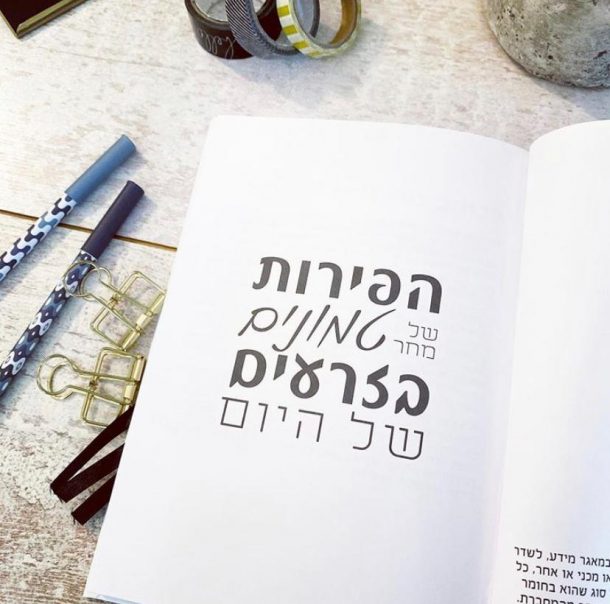 הפירות
של מחר טמונים
בזרעים
של היום
במאגר מידע, לשדר
או מכני או אחר, כל
סוג שהוא בחומר